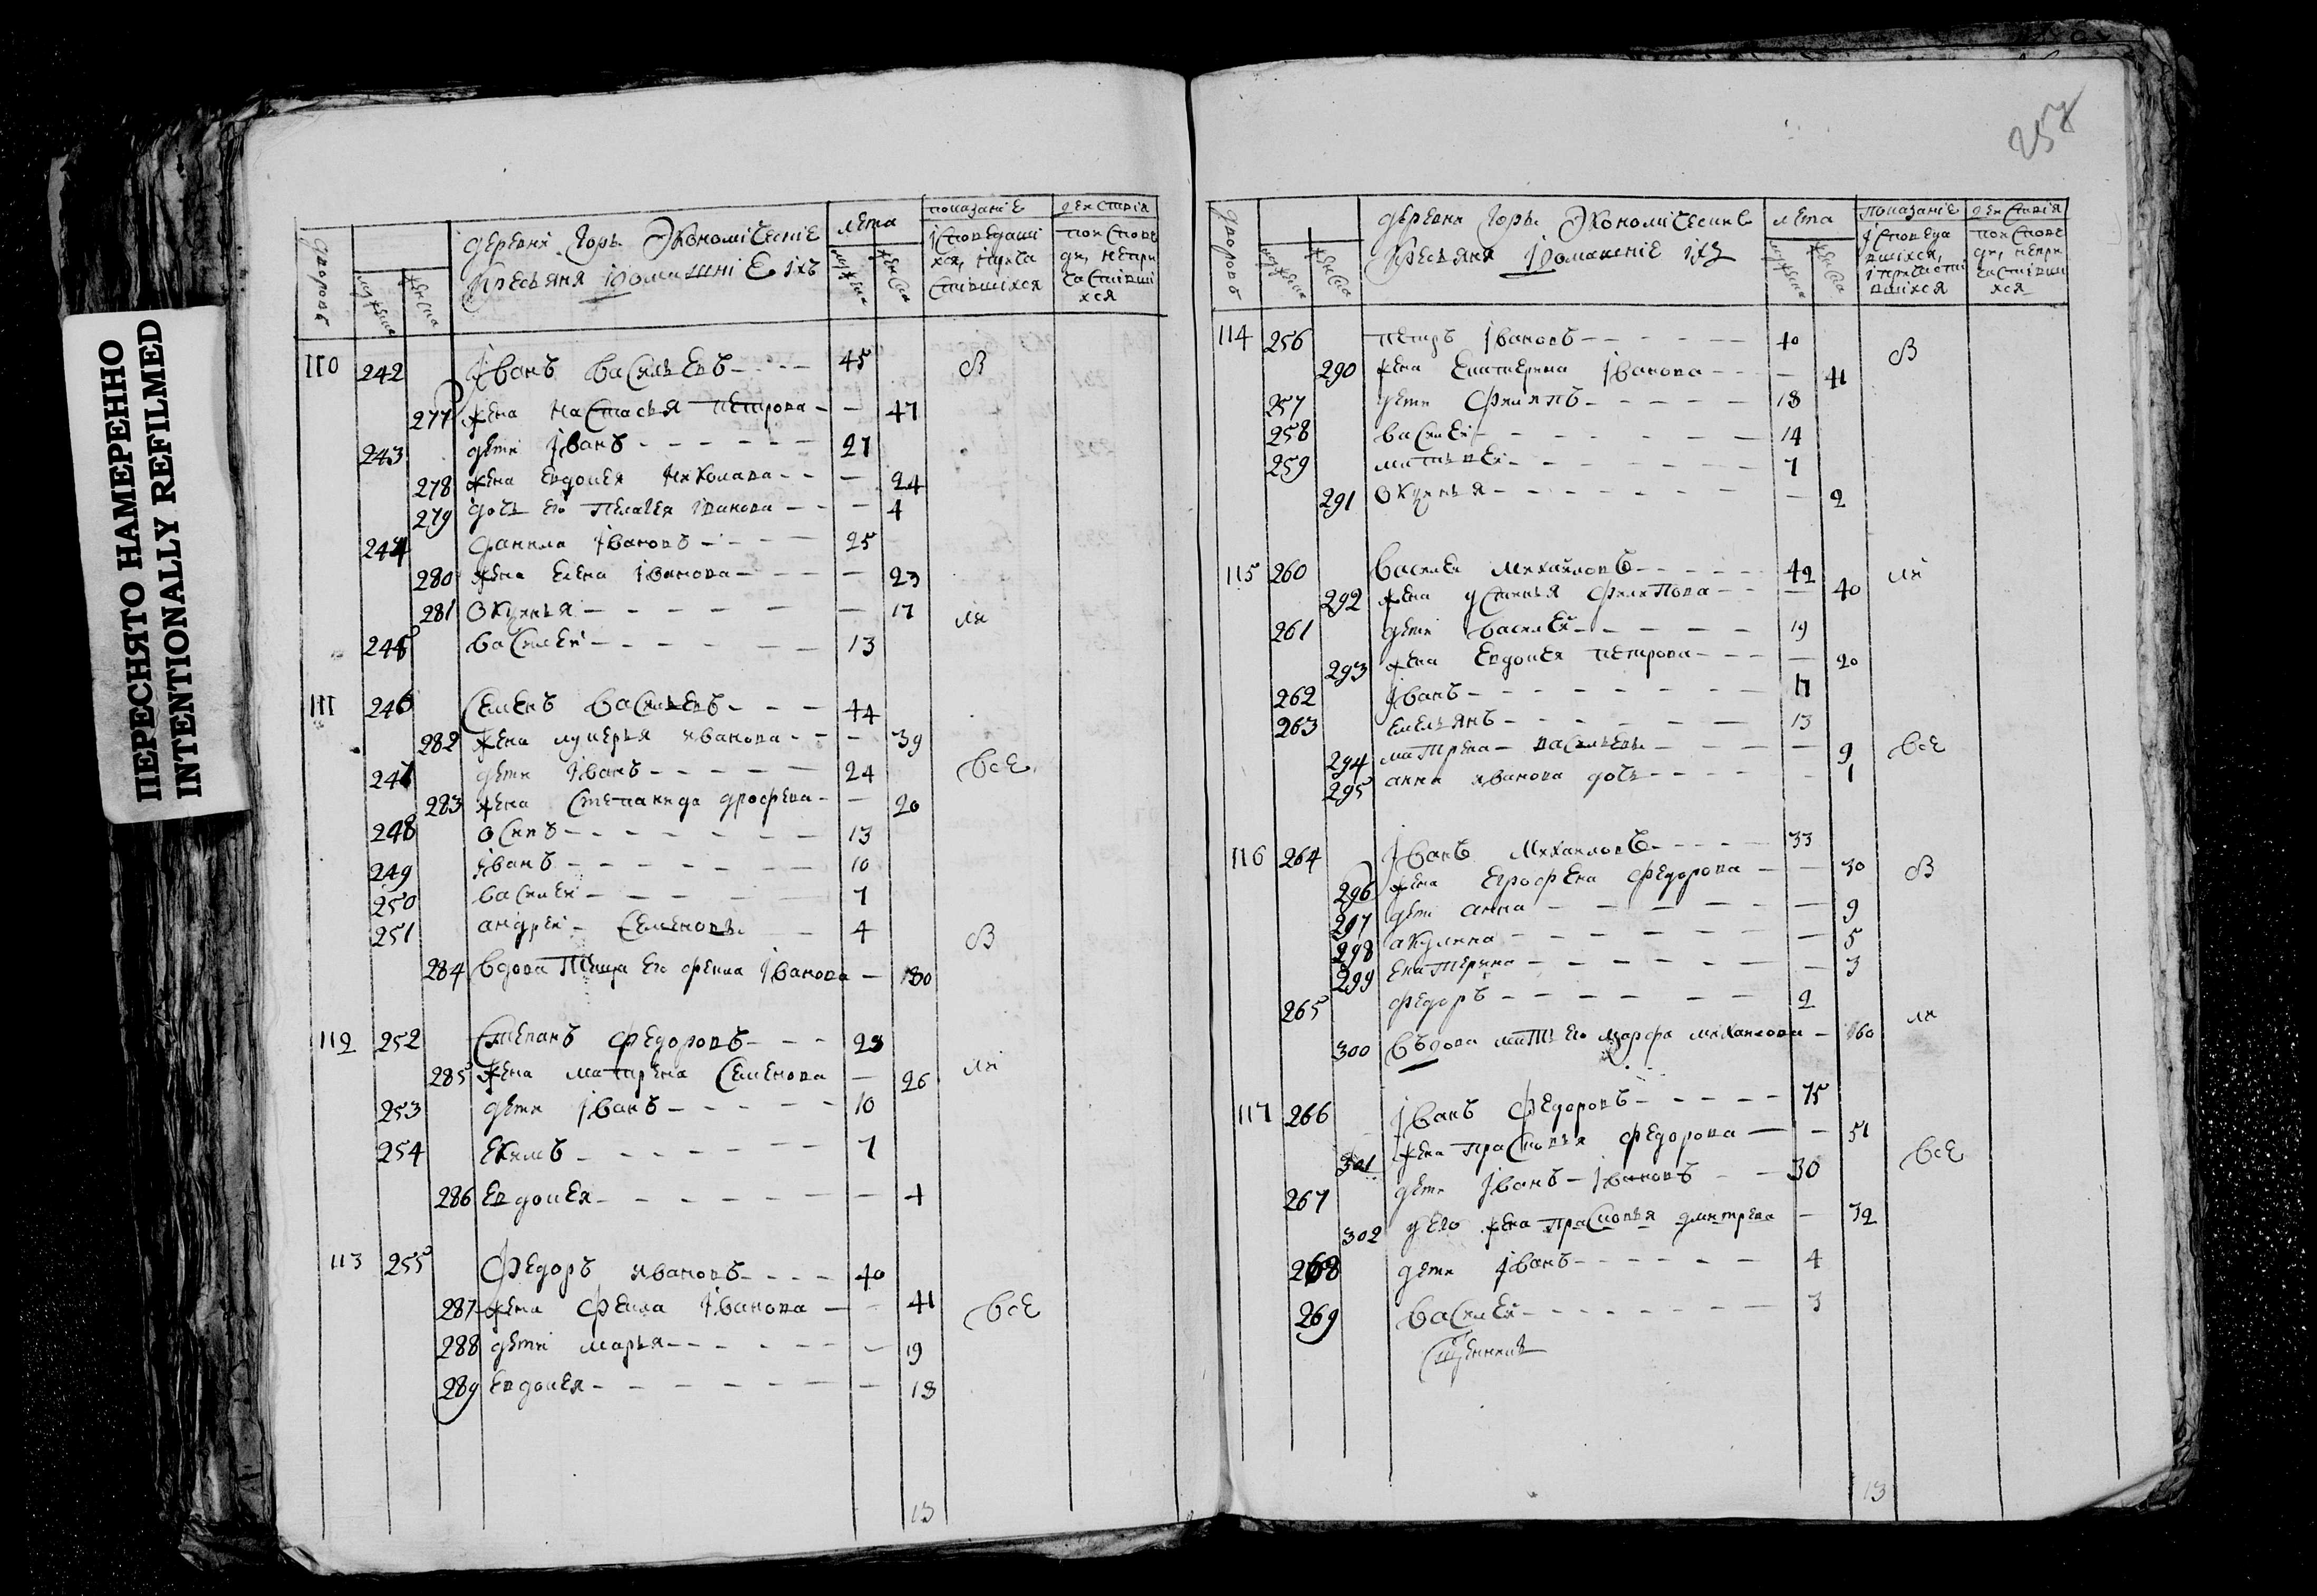 ПЕРЕСНЯТО НАМЕРЕННО
INTENTIONALLY REFILMED
дворовъ
мужеска
женска
деревни Горы Экономическіе
крестьяня идомашніе ихъ
лѣта
мужеска
женска
показаніе
исповедавши
хся, ипріча
стившихся
действія
поиспове
ди, непри
частивши
хся
110 242 Іванъ васильевъ 45 В
277 жена настасья петрова 47
243 дети іванъ 27
278 жена евдокея николаева 24
279 дочь его пелагея іванова 4
244 данила івановъ 25
280 жена елена іванова 23
281 окулья 17 ли
245 василеи 13
111 246 Семенъ васильевъ 44
282 жена лукерья иванова 39
247 дети іванъ 24 все
283 жена степанида дрофева 20
248 осипъ 13
249 иванъ 10
250 василеи 7
251 андреи семеновы 4 В
284 вдова теща его фекла іванова 80
112 252 Степанъ федоровъ 23
285 жена матрена семенова 26 ли
253 дети іванъ 10
254 екимъ 7
286 евдокея 4
113 255 Федоръ ивановъ 40
287 жена фекла іванова 41 все
288 дети марья 19
289 евдокея 13
13
257
дворовъ
мужеска
женска
деревни Горы Экономические
крестьяня ідомашніе ихъ
лета
мужеска
женска
показаніе
исповеда
вшихся,
іпричасти
вшихся
действія
поиспове
ди, непри
частивши
хся
114 256 петръ івановъ 40 В
290 жена екатерина іванова 41
257 дети филипъ 18
258 василеи 14
259 матьвеи 7
291 окулья 2
115 260 василеи михайловъ 42 ли
292 жена устинья филипова 40
261 дети василеи 19
293 жена евдокея петрова 20
262 іванъ 17
263 емельянъ 13
294 матрена васильевы 9 все
295 анна иванова дочь 1
116 264 Іванъ михаиловъ 33
296 жена ерофева федорова 30 В
297 дети анна 9
298 акулина 5
299 екатерина 3
265 федоръ 2
300 въдова мать его марфа михаилова 60 ли
117 266 Іванъ федоровъ 75
301 жена прасковья федорова 51
267 дети іванъ івановъ 30 все
302 у его жена прасковья дмитрева 32
268 дети іванъ 4
269 василеи 3
13